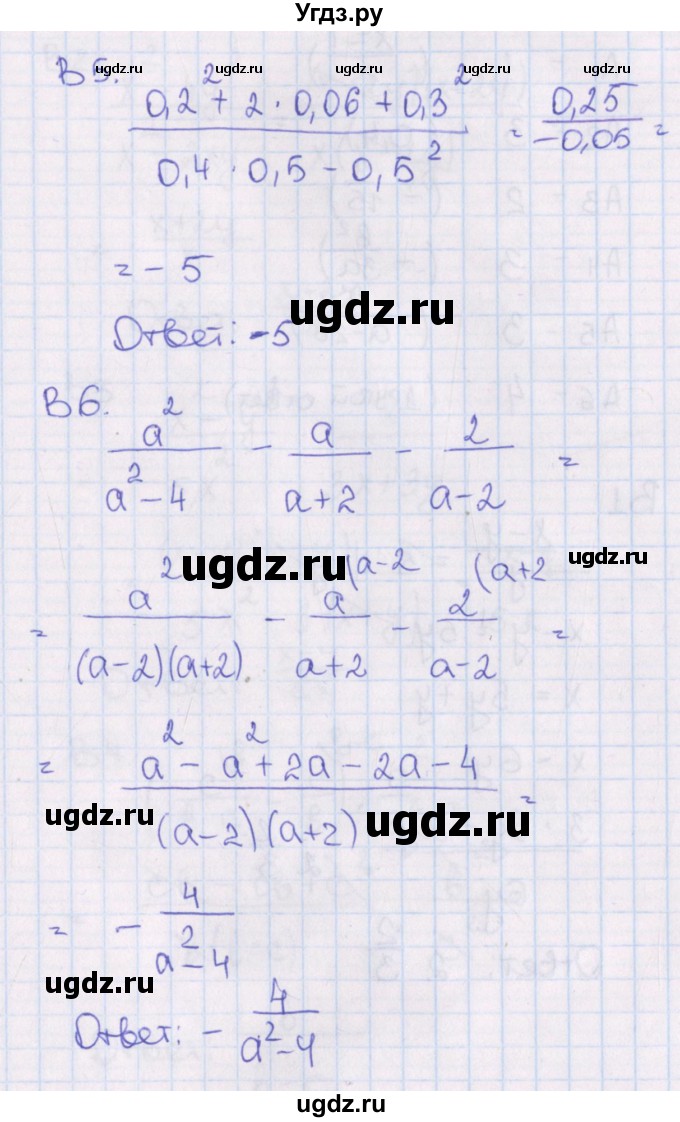 Угдз.ру
ugdz.ru ugdz.ru ugdz.ru ugdz.ru ugdz.ru
В 5. (0,2² + 2 · 0,06 + 0,3²) / (0,4 · 0,5 − 0,5²) = 0,25 / −0,05 =
= − 5
ugdz.ru
Ответ: −5
В 6.
a² / (a² − 4) − a / (a + 2) − 2 / (a − 2) =
ugdz.ru ugdz.ru
(a−2 (a+2
= a² / (a−2)(a+2) − a / (a+2) − 2 / (a−2) =
= (a² − a² + 2a − 2a − 4) / (a−2)(a+2) =
ugdz.ru ugdz.ru
= − 4 / (a² − 4)
ugdz.ru
Ответ: − 4 / (a² − 4)
ugdz.ru